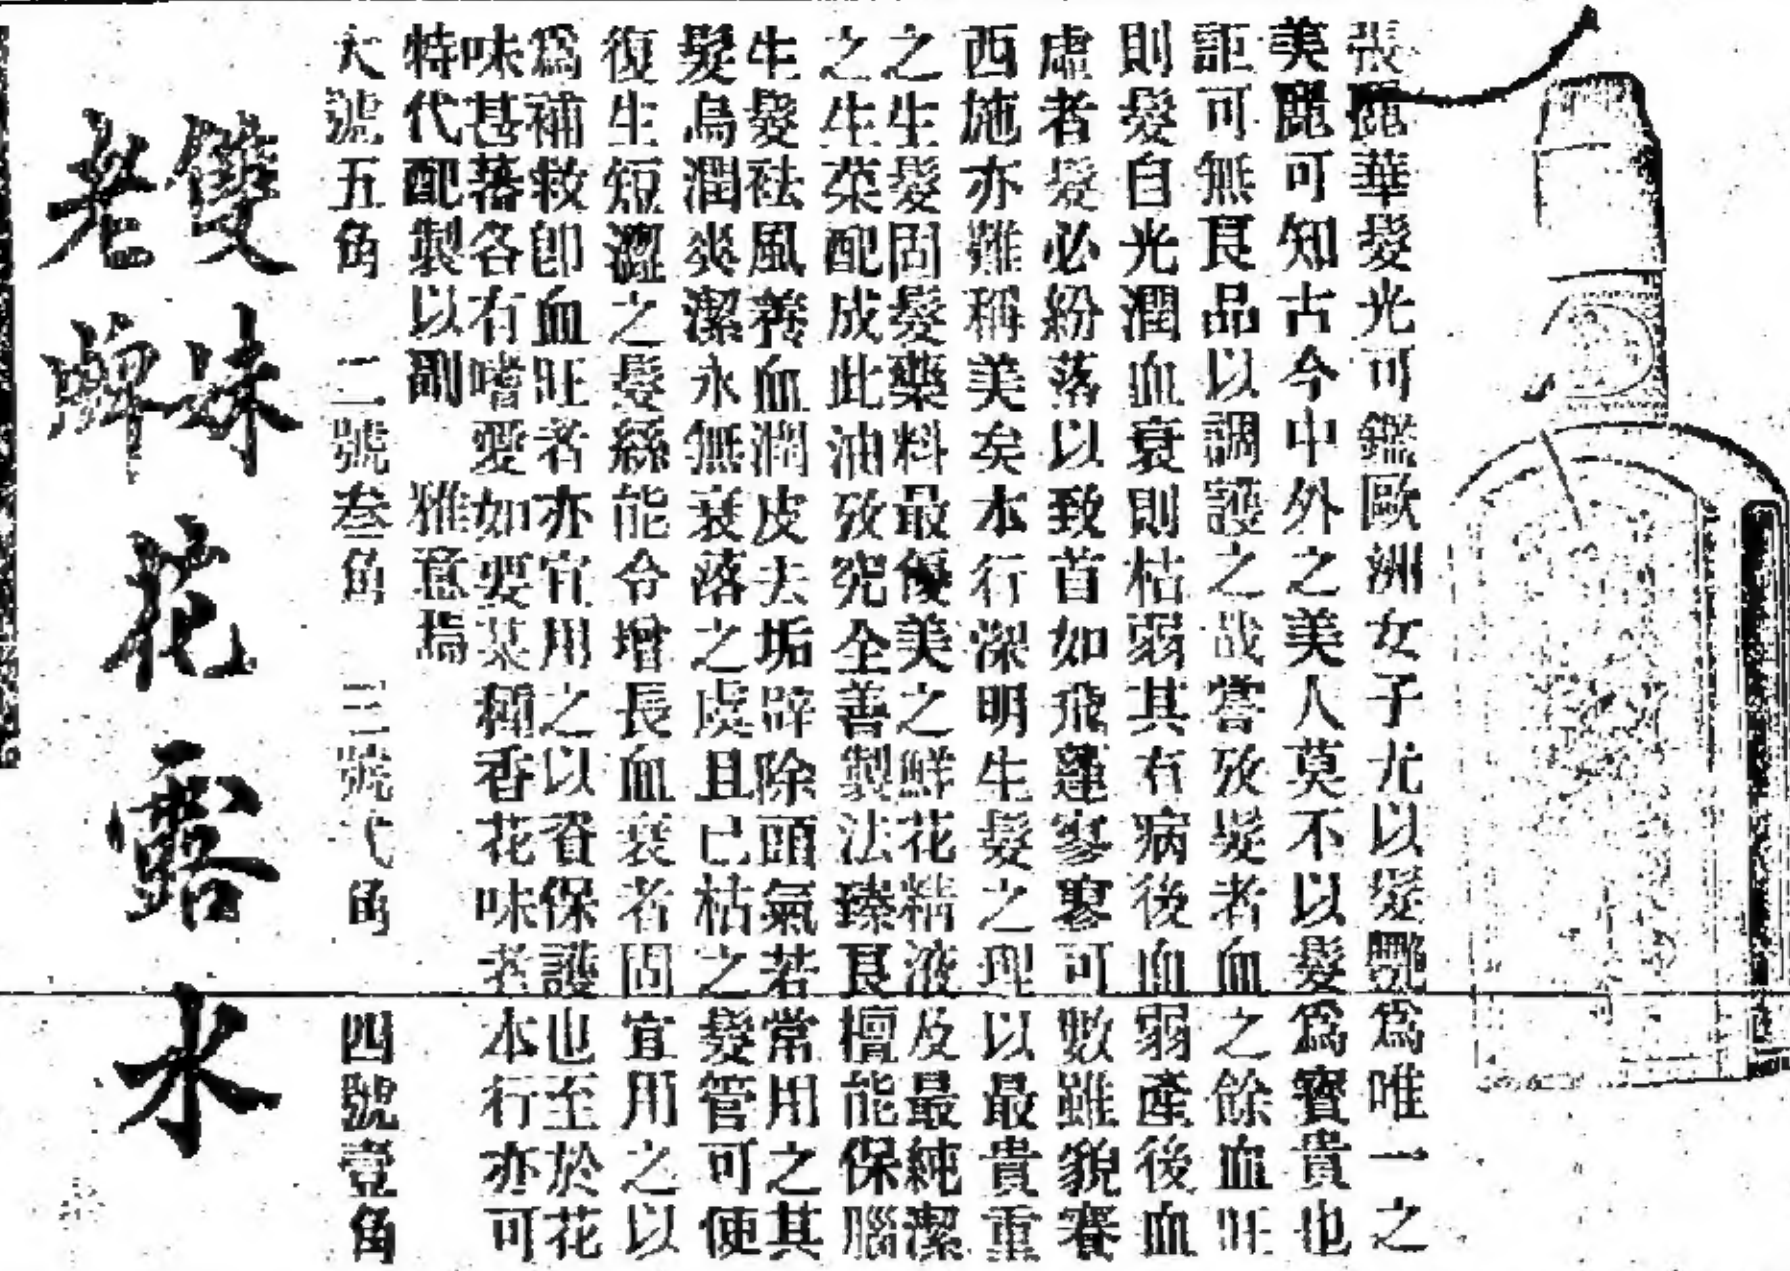 張麗華髮光可鑑歐洲女子尤以髮艷爲唯一之
美麗可知古今中外之美人莫不以髮爲寳貴也
詎可無良品以調護之哉嘗攷髮者血之餘血旺
則髮自光潤血衰則枯弱其有病後血弱產後血
虛者髮必紛落以致首如飛蓬寥寥可數雖貌賽
西施亦難稱美矣本行深明生髮之理以最貴重
之生髮固髮藥料最優美之鮮花精液及最純潔
之生菜配成此油攷究全善製法臻良檀能保腦
生髮祛風養血潤皮去垢辟除頭氣若常用之其
髮烏潤爽潔永無衰落之虞且已枯之髮管可使
復生短澀之髮絲能令增長血衰者固宜用之以
爲補救卽血旺者亦宜用之以資保護也至於花
味甚蕃各有嗜愛如要某種香花味者本行亦可
特代配製以副 雅意焉
大號五角 二號叁角 三號弍角 四號壹角
雙妹
老牌
花露水